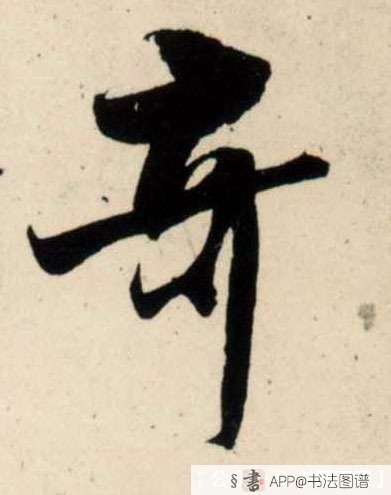 奇
§ 書 APP@书法图谱